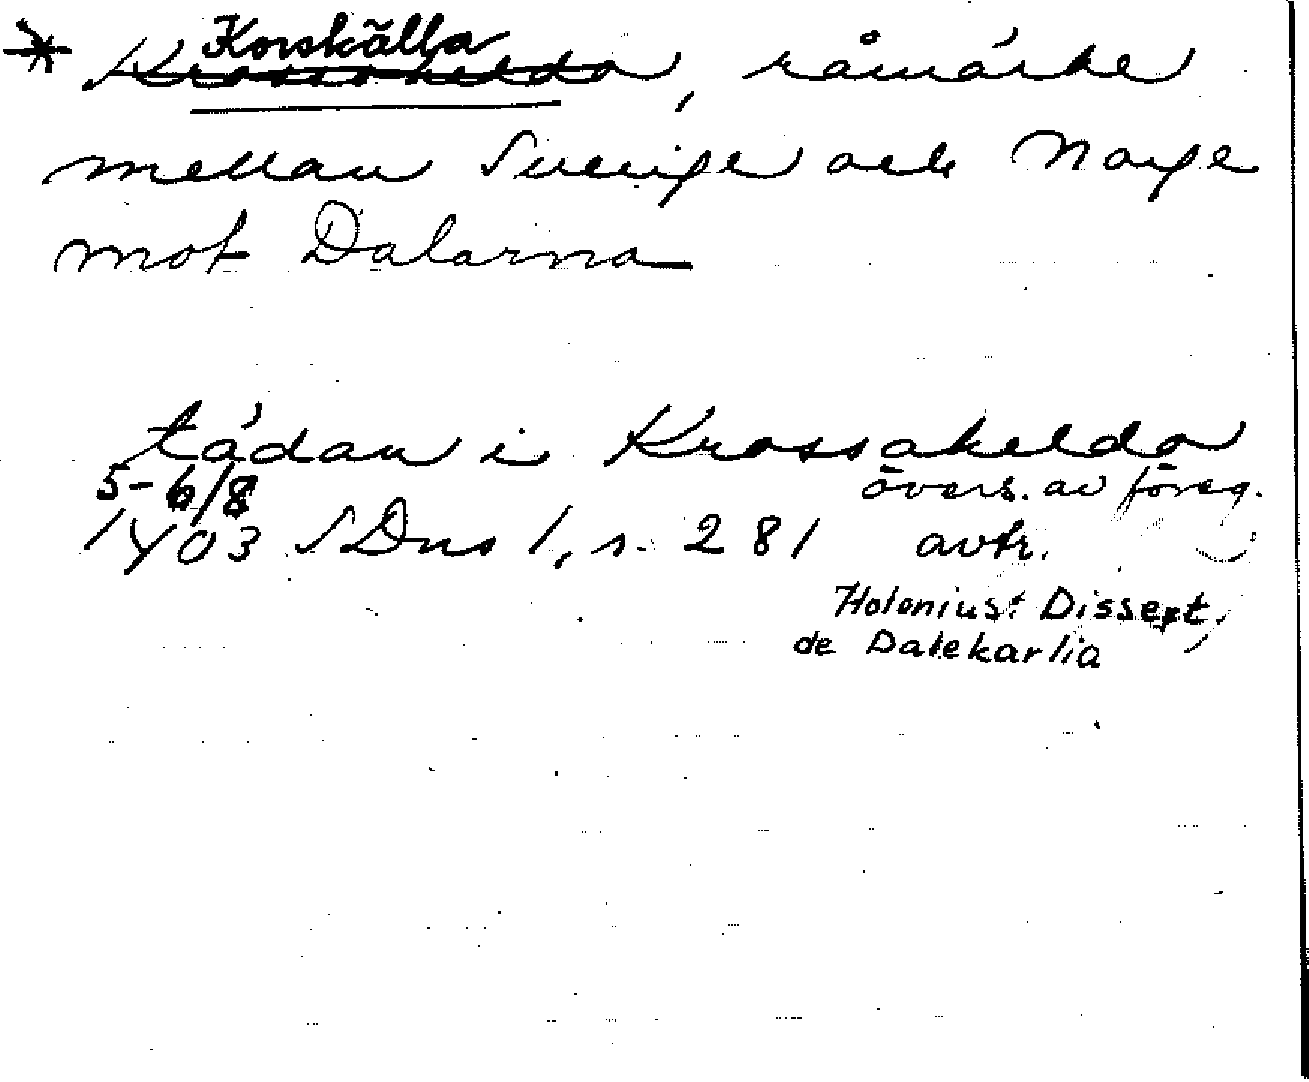 * Korskälla
Krossakelda, råmärke
mellan Sverige och Norge
mot Dalarna
tádan i Krossakelda
5-6/8 övers. av föreg.
1403 SDns 1, s. 281 avtr.
Holenius: Dissert.
de Dalekarlia